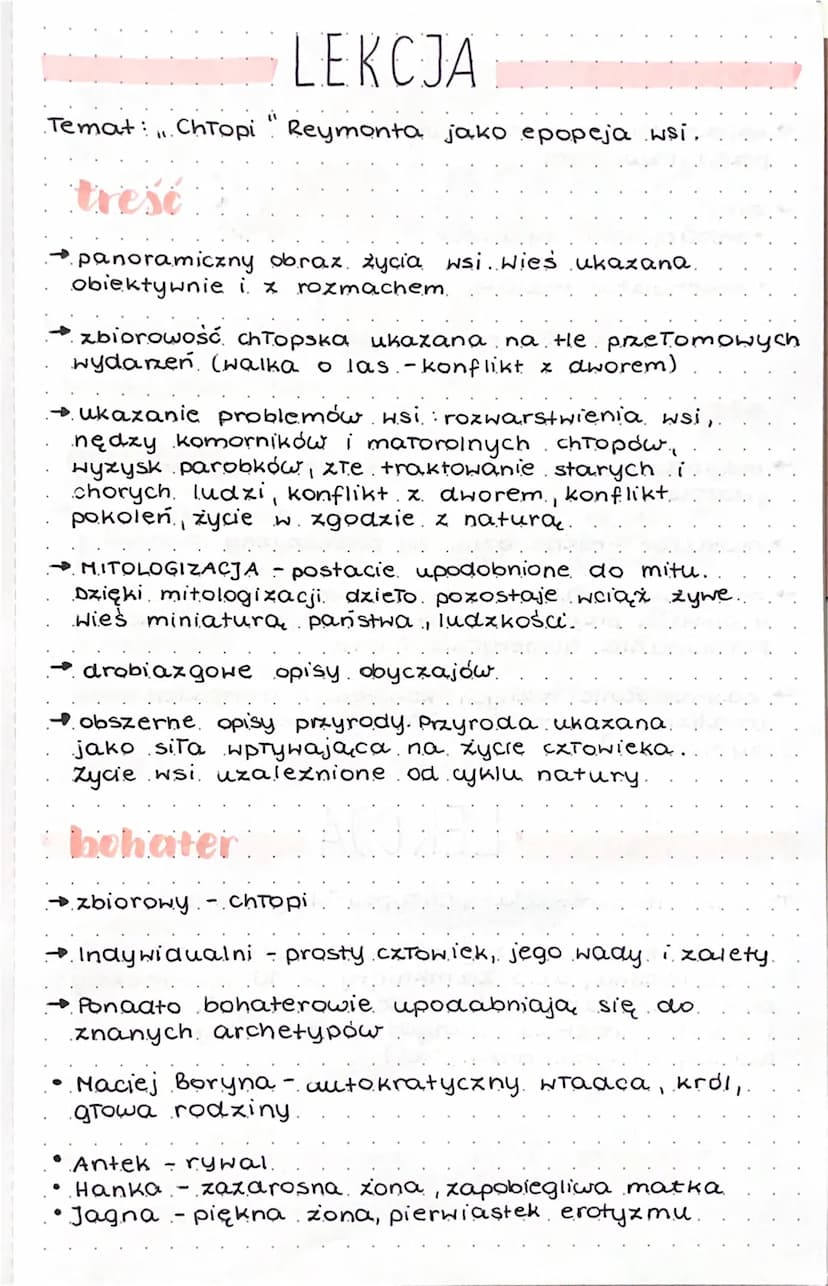 LEKCJA
Temat: „Chłopi" Reymonta jako epopeja wsi.
treść
→ panoramiczny obraz życia wsi. Wieś ukazana
obiektywnie i z rozmachem
→ zbiorowość chłopska ukazana na tle przełomowych
wydarzeń (walka o las - konflikt z dworem)
→ ukazanie problemów wsi: rozwarstwienia wsi,
nędzy komorników i małorolnych chłopów,
wyzysk parobków, złe traktowanie starych i
chorych ludzi, konflikt z dworem, konflikt
pokoleń, życie w zgodzie z naturą.
→ MITOLOGIZACJA - postacie upodobnione do mitu.
Dzięki mitologizacji dzieło pozostaje wciąż żywe.
Wieś miniaturą państwa, ludzkości.
→ drobiazgowe opisy obyczajów
→ obszerne opisy przyrody. Przyroda ukazana
jako siła wpływająca na życie człowieka.
Życie wsi uzależnione od cyklu natury.
bohater
→ zbiorowy - chłopi
→ Indywidualni - prosty człowiek, jego wady i zalety.
→ Ponadto bohaterowie upodabniają się do
znanych archetypów
• Maciej Boryna - autokratyczny władca, król,
głowa rodziny
• Antek - rywal
• Hanka - zazdrosna żona, zapobiegliwa matka
• Jagna - piękna żona, pierwiastek erotyzmu